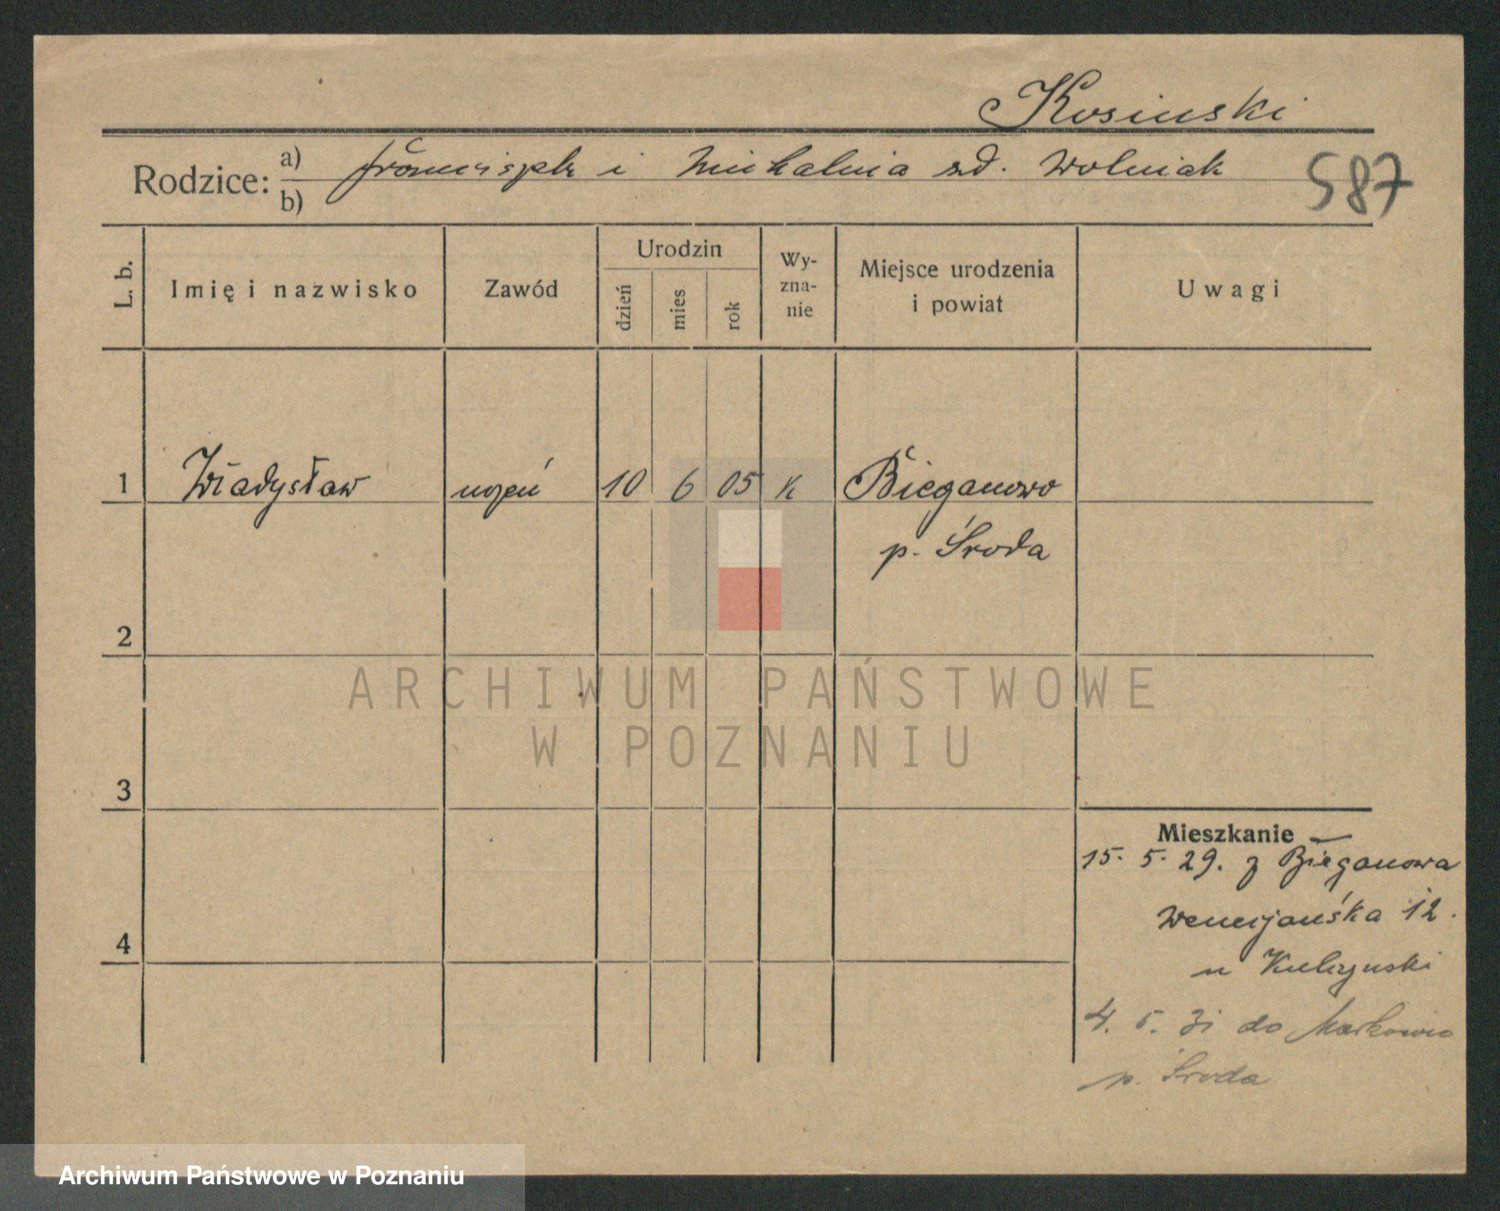 Kosinski
Rodzice: a) Franciszek i Michalina zd. Wolniak
b)
587
L. b. Imię i nazwisko Zawód Urodzin dzień mies rok Wyznanie Miejsce urodzenia i powiat Uwagi
1 Władysław uczeń 10 6 05 k Bieganowo
p. Środa
2
ARCHIWUM PAŃSTWOWE
W POZNANIU
3
Mieszkanie
15. 5. 29. z Bieganowa
Wenecjańska 12.
u Kulczynski
4
4. 5. 31 do
p. Środa
Archiwum Państwowe w Poznaniu